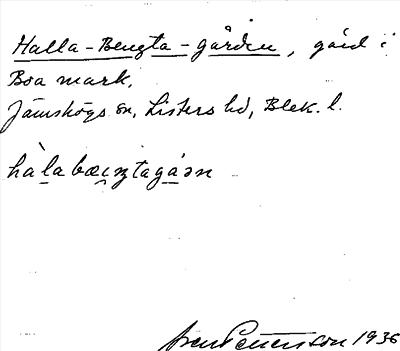 Halla-Bengta-gården, gård i
Boa mark.
Jämshögs sn, Listers hd, Blek. l.
hàlabæiŋtagá̱ən
Pettersson 1936